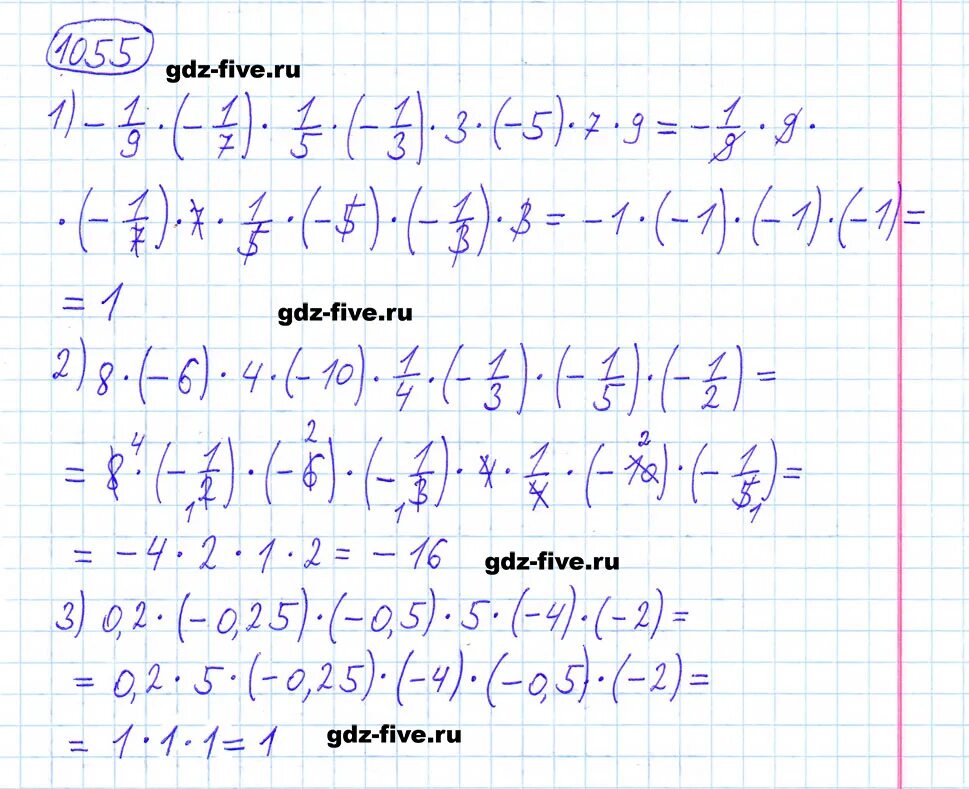 1055
gdz-five.ru
1) - 1/9 · (- 1/7) · 1/5 · (- 1/3) · 3 · (-5) · 7 · 9 = - 1/9 · 9 ·
· (- 1/7) · 7 · 1/5 · (-5) · (- 1/3) · 3 = -1 · (-1) · (-1) · (-1) =
= 1
gdz-five.ru
2) 8 · (-6) · 4 · (-10) · 1/4 · (- 1/3) · (- 1/5) · (- 1/2) =
= 8 4 · (- 1/2 1) · (-6 2) · (- 1/3 1) · 4 · 1/4 · (-10 2) · (- 1/5 1) =
= -4 · 2 · 1 · 2 = -16
gdz-five.ru
3) 0,2 · (-0,25) · (-0,5) · 5 · (-4) · (-2) =
= 0,2 · 5 · (-0,25) · (-4) · (-0,5) · (-2) =
= 1 · 1 · 1 = 1
gdz-five.ru